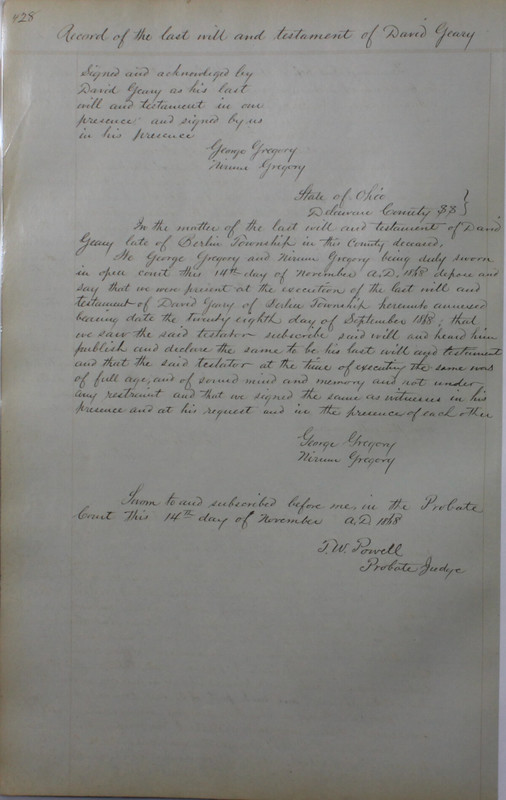 428
Record of the last will and testament of David Geary
Signed and acknowledged by
David Geary as his last
will and testament in our
presence and signed by us
in his presence
George Gregory
Nirum Gregory
State of Ohio
Delaware County SS }
In the matter of the last will and testament of David
Geary late of Berlin Township in this County deceased.
We George Gregory and Nirum Gregory being duly sworn
in open court this 14th day of November A.D. 1868 depose and
say that we were present at the execution of the last will and
testament of David Geary of Berlin Township hereunto annexed
bearing date the twenty eighth day of September 1868; that
we saw the said testator subscribe said will and heard him
publish and declare the same to be his last will and testament
and that the said testator at the time of executing the same was
of full age, and of sound mind and memory and not under
any restraint and that we signed the same as witnesses in his
presence and at his request and in the presence of each other
George Gregory
Nirum Gregory
Sworn to and subscribed before me, in the Probate
Court this 14th day of November A.D 1868
T.W. Powell
Probate Judge